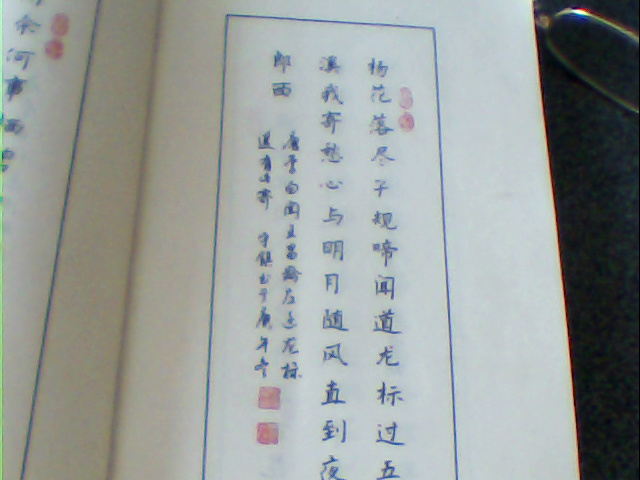 杨花落尽子规啼闻道龙标过五
溪我寄愁心与明月随风直到夜
郎西
唐李白闻王昌龄左迁龙标
遥有此寄
余何事西